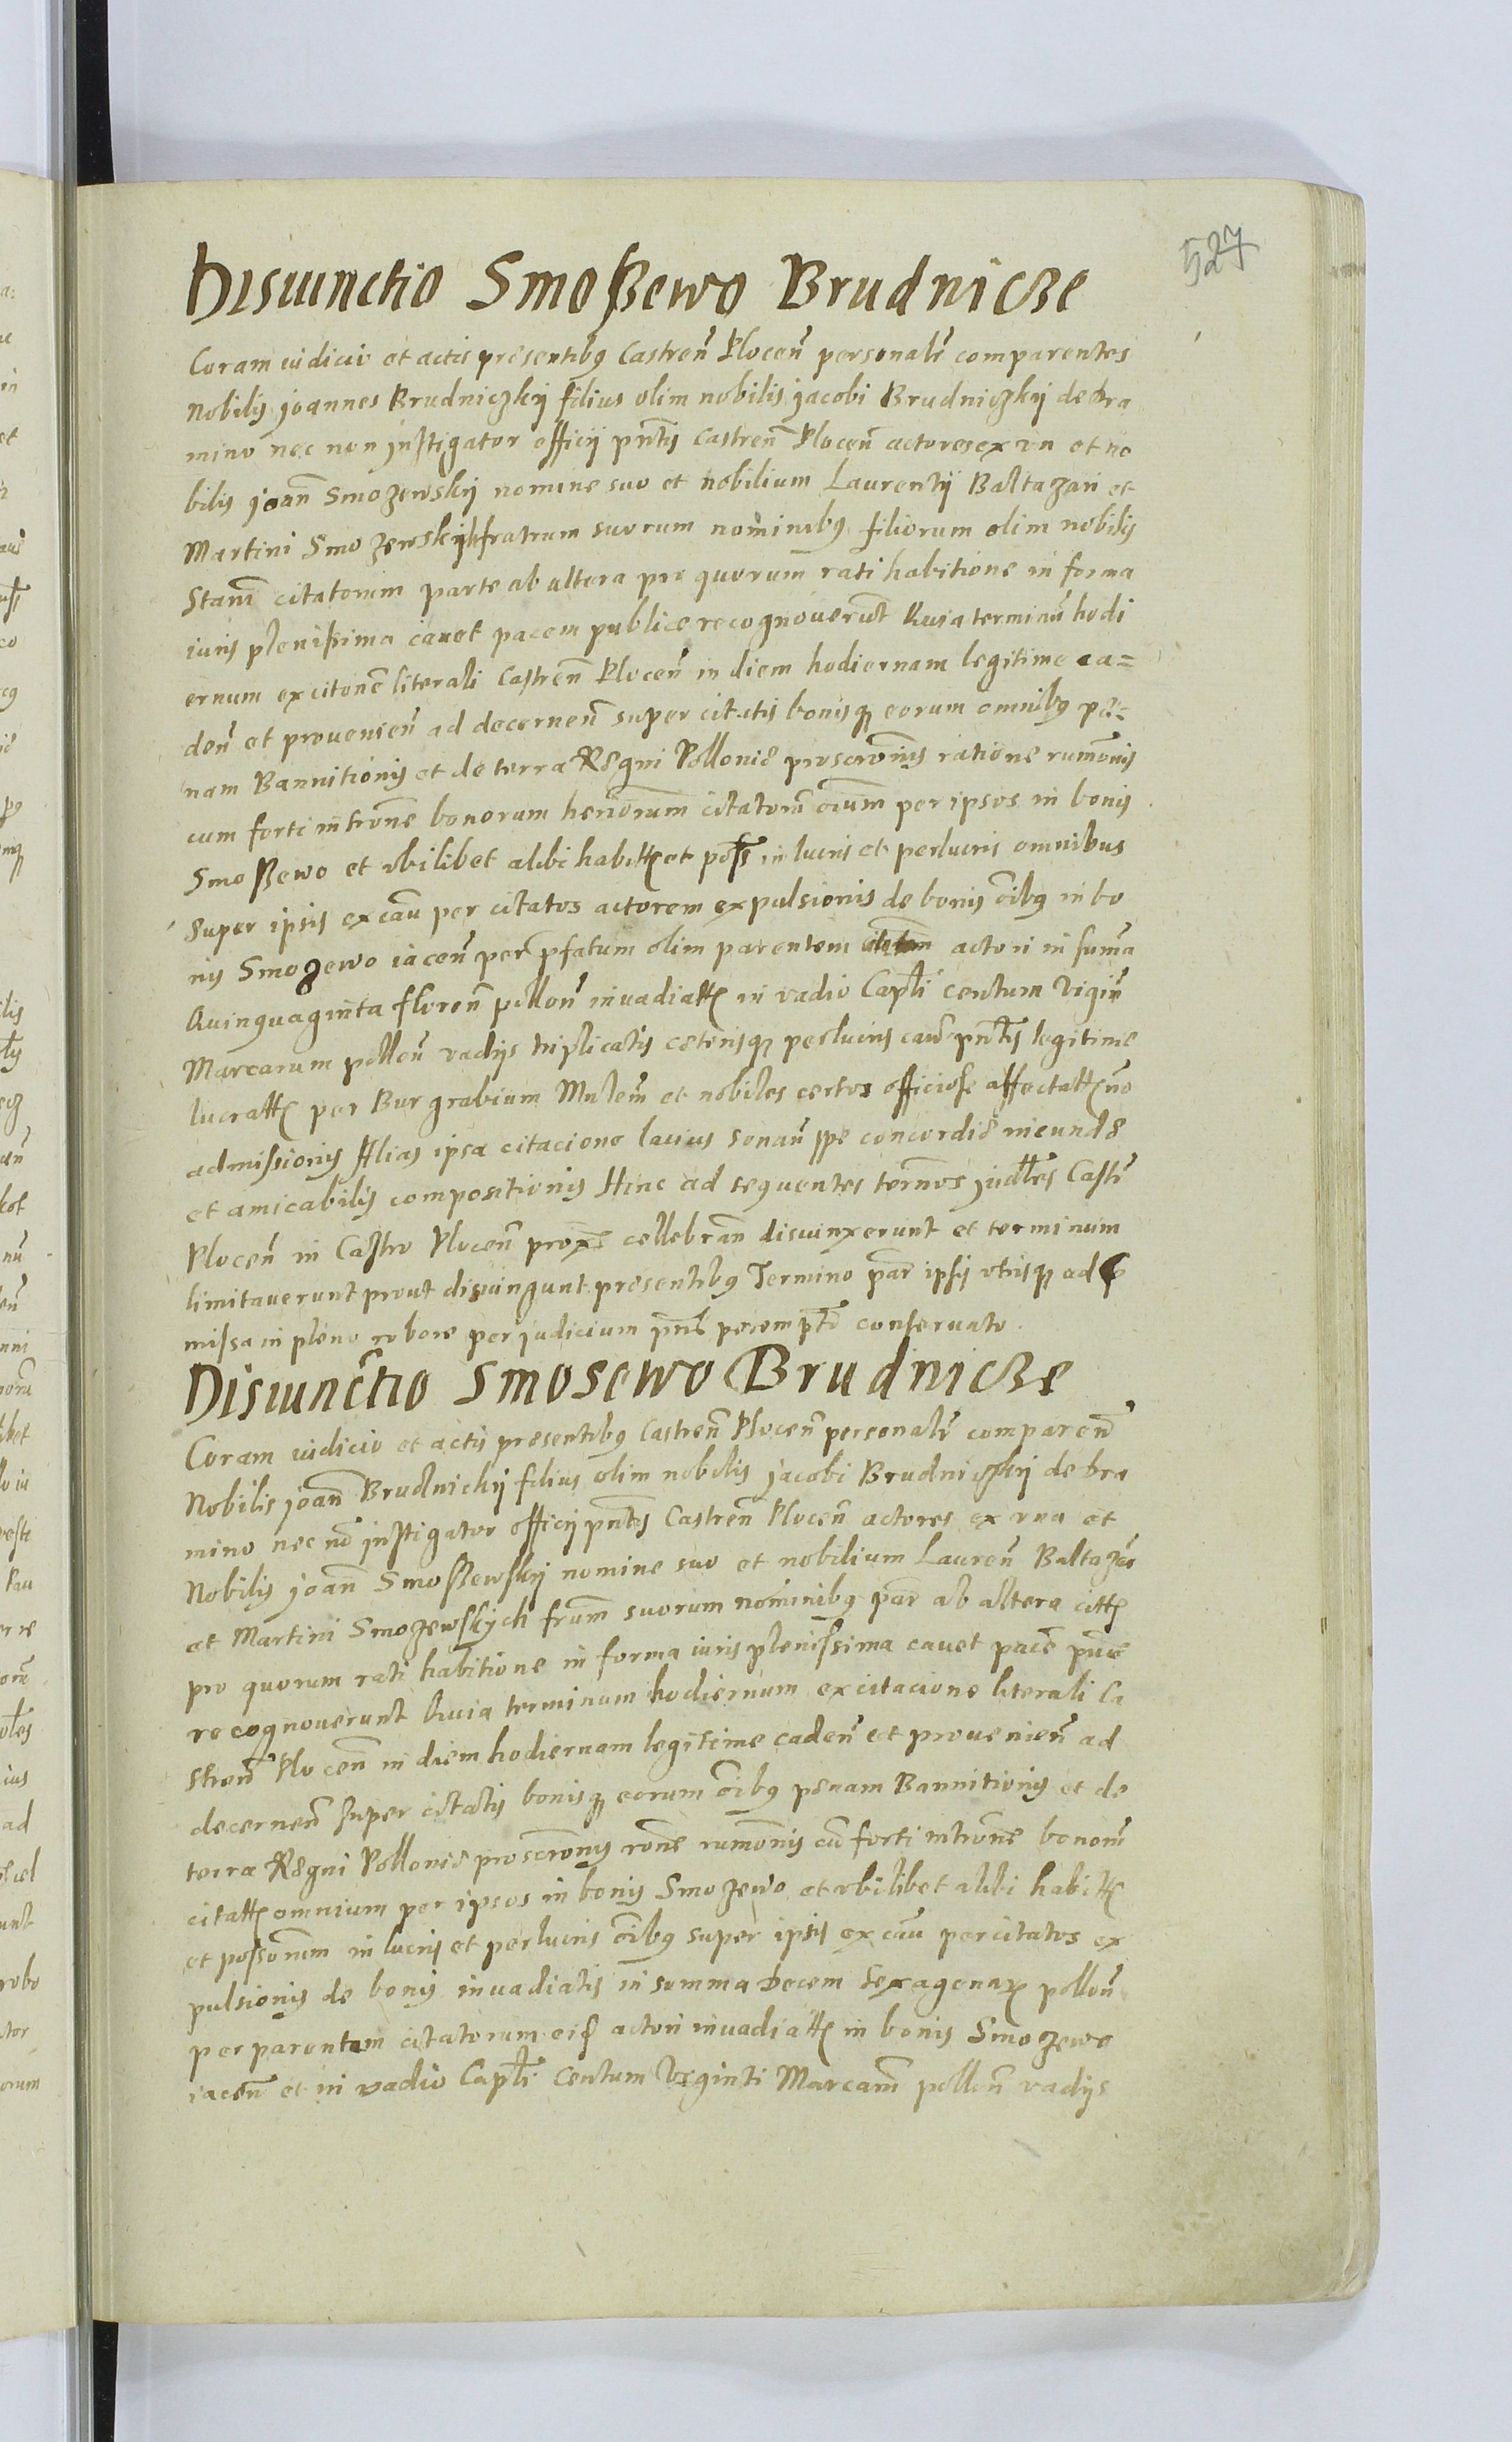 527
Disiunctio Smoßewo Brudnicze
Coram iudicio et actis presentibꝯ Castreñ Ploceñ personalr̃ comparentes
Nobilis joannes Brudniczkij filius olim nobilis jacobi Brudniczkij de bra
mino nec non jnstigator officij pn̄tis Castreñ Ploceñ actores ex vn et no
bilis joan̄ Smozewskij nomine suo et nobilium Laurentij Baltazari et
Martini Smozewskijh fratrum suorum nominibꝯ filiorum olim nobilis
Stanī citatorum parte ab altera pro quorum̄ rati habitione in forma
iuris plenissima cauet pacem publice recognouerūt Quia terminū hodi
ernum ex citonē literali Castreñ Ploceñ in diem hodiernam legitime ca=
deñ et prouenieñ ad decerneñ super citatis bonisqꝫ eorum omnibꝯ pę=
nam Bannitionis et de terra Ręgni Pollonię proscrōnis ratione rumōnis
cum forti intrōne bonorum heriōrum citatorū oīum per ipsos in bonis
Smoßewo et vbilibet alibi habittꝫ et poss̄ in lucris et perlucris omnibus
super ipsis ex cau per citatos actorem expulsionis de bonis oībꝯ in bo
nis Smozewo iaceñ per p̄fatum olim parentem actori in sum̄a
Quinquaginta floreñ polloñ inuadiattꝫ in vadio Capłi centum vigin̄
Marcarum polloñ vadijs triplicatis cęterisqꝫ perlucris caūr pn̄tis legitime
lucrattꝫ per Burgrabium Mnłem̄ et nobiles certos officiose affectattꝫ nō
admissionis Alias ipsa citacione lacius sonañ spe concordię ineundę
et amicabilis compositionis Hinc ad sequentes ternōs judłes Castr̄
Ploceñ in Castro Ploceñ prox̄e cellebran̄ disiunxerunt et terminum
limitauerunt prout disiungunt presentibꝯ Termino par̄ ipsis vtrisqꝫ ad p̄
missa in pleno robore per judicium pn̄s perempt̄o conseruato.
Disiunctio Smosewo Brudnicze
Coram iudicio et actis presentibꝯ Castreñ Ploceñ personalr̃ compareñ
Nobilis joan̄ Brudnickij filius olim nobilis jacobi Brudniczkij de bra
mino nec nō jnstigator officij pn̄tis Castreñ Ploceñ actores ex vna et
Nobilis joan̄ Smoßewskij nomine suo et nobilium Laureñ Baltazar̄
et Martini Smozewskych frūm suorum nominibꝯ par̄ ab altera cittꝫ
pro quorum rati habitione in forma iuris plenissima cauet pacē pu᷑ce
recognouerunt Quia terminum hodiernum ex citacione literali Ca
streñ Ploceñ in diem hodiernam legitime cadeñ et prouenieñ ad
decerneñ super citatis bonisqꝫ eorum oībꝯ penam Bannitionis et de
terra Ręgni Pollonię proscrōnis rōne rumōnis cū forti intrōne bonorū
citattꝫ omnium per ipsos in bonis Smozewo et vbilibet alibi habittꝫ
et possorum in lucris et perlucris oībꝯ super ipsis ex cau per citatos ex
pulsionis de bonis inuadiatis in summa Decem Sexagenarꝫ polloñ
per parentem citatorum actori inuadiattꝫ in bonis Smozewo
iaceñ et in vadio Capłi Centum Viginti Marcarū polloñ vadijs